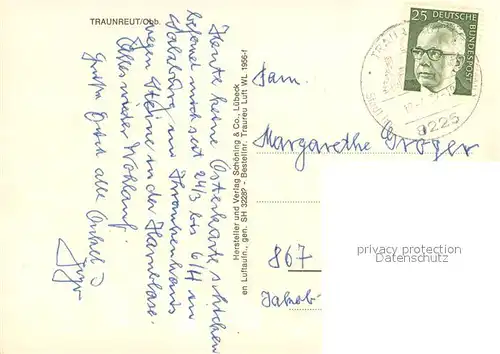 TRAUNREUT/Obb.
Heute keine Osterkarte schicken
befand mich seit 24/3 bis 6/4 in
Salzburg im Krankenhaus
wegen Steine in der Harnblase.
Alles wieder Wohlauf.
Grüße Euch alle Onkel
Hersteller und Verlag Schöning & Co., Lübeck
en Luftaufn., gen. SH 32282 - Bestellnr. Traureu Luft WL 1956-f
25 DEUTSCHE BUNDESPOST
8225
Fam.
Margarethe Gröger
867
Jakob-
privacy protection
Datenschutz